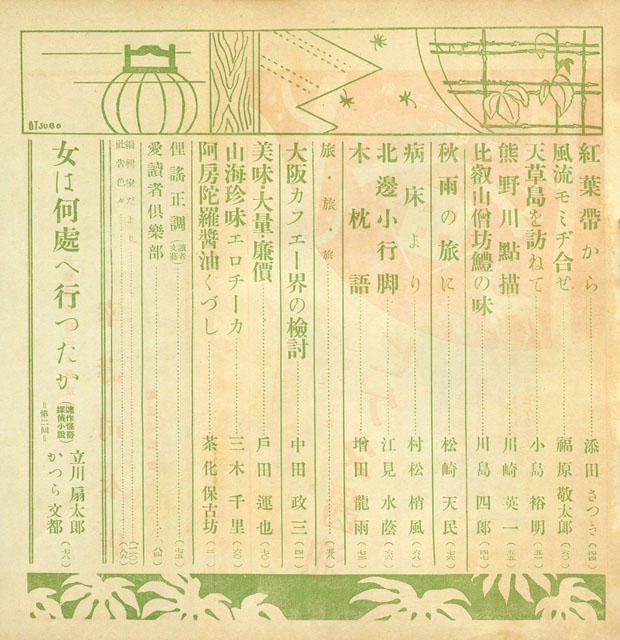 紅葉帶から 添田さつき（四四）
風流モミヂ合せ 福原敬太郎（六〇）
天草島を訪ねて 小島裕明（五一）
熊野川點描 川崎英一
比叡山僧坊鱧の味 川島四郎（四七）
秋雨の旅に 松崎天民（七六）
病床より 村松梢風（六八）
北邊小行脚 江見水蔭（六六）
木枕語 增田龍雨（七三）
旅・旅・旅
大阪カフエー界の檢討 中田政三（四一）
美味・大量・廉價 戶田運也（七〇）
山海珍味エロチーカ 三木千里（六〇）
阿房陀羅醬油くづし 茶化保古坊
俚謠正調（讀者文藝）（七五）
愛讀者俱樂部（八四）
編輯室だより（一二〇）
社告色々（八六）
女は何處へ行つたか（連作怪奇探偵小說）＝第二回＝ 立川扇太郎 かつら文都（七八）
OTSUBO